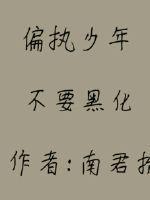 偏执少年
不要黑化
作者:南君